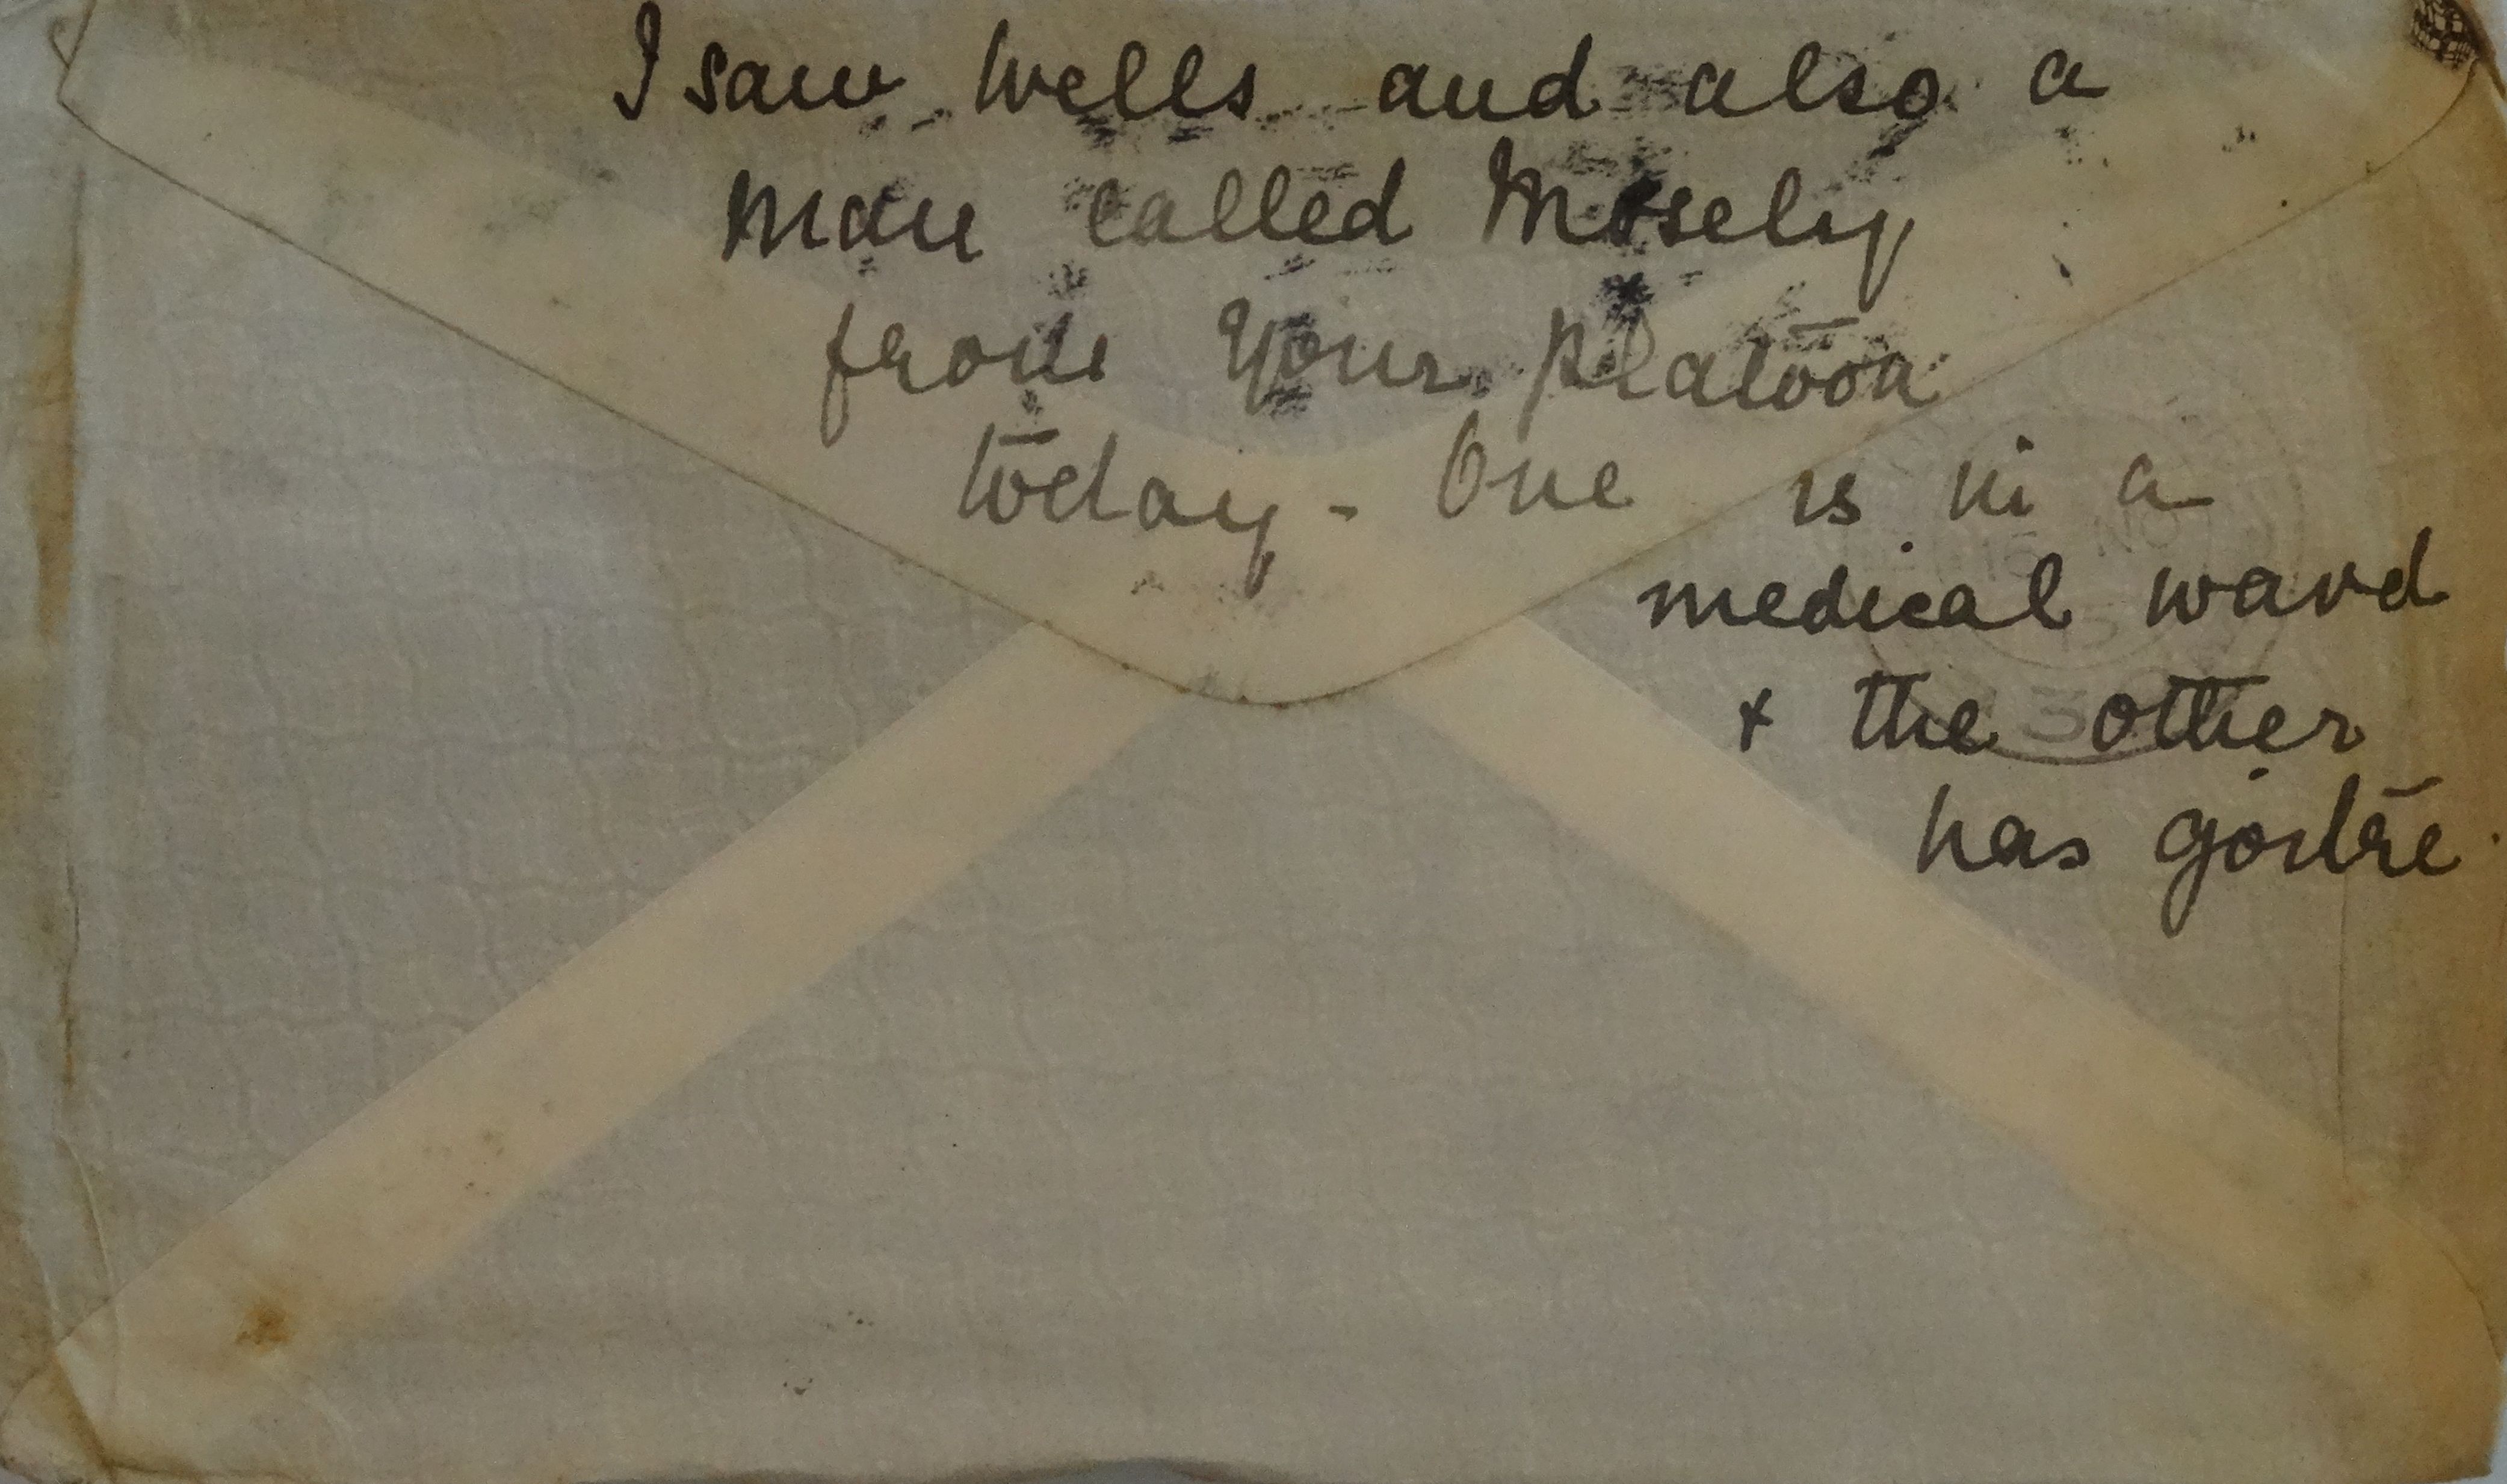 I saw Wells and also a
man called Mosely
from your platoon
today - One is in a
medical ward
+ the other
has goitre.